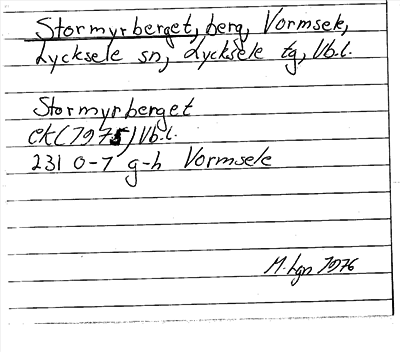 Stormyrberget, berg, Vormsele,
Lycksele sn, Lycksele tg, Vb.l.
Stormyrberget
EK (1975) Vb.l.
231 0-1 g-h Vormsele
M. Lgn 1976